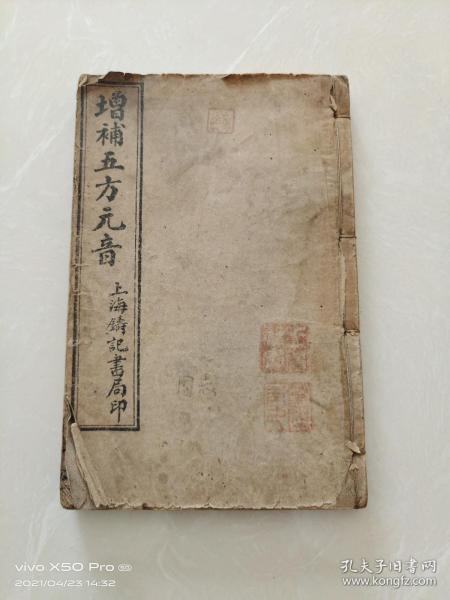 增補五方元音
上海鑄記書局印
vivo X50 Pro 5G
2021/04/23 14:32
孔夫子旧书网
www.kongfz.com